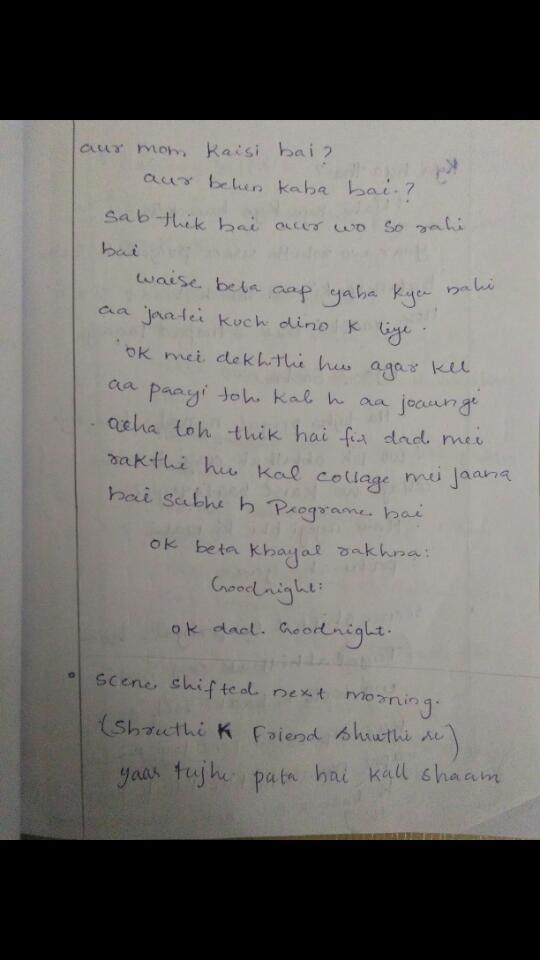 aur mom kaisi hai?
aur behen kaha hai.?
sab thik hai aur wo so rahi
hai
waise beta aap yaha kyu nahi
aa jaatei kuch dino k liye.
ok mei dekhthi hu agar kll
aa paayi toh kal h aa jaaungi
acha toh thik hai fir dad mei
rakthi hu kal collage mei jaana
hai subhe h Programe hai
ok beta khayal rakhna:
Goodnight:
ok dad. Goodnight.
• scene shifted next morning.
(Shruthi K Friend Shruthi se)
yaar tujhe pata hai kall shaam